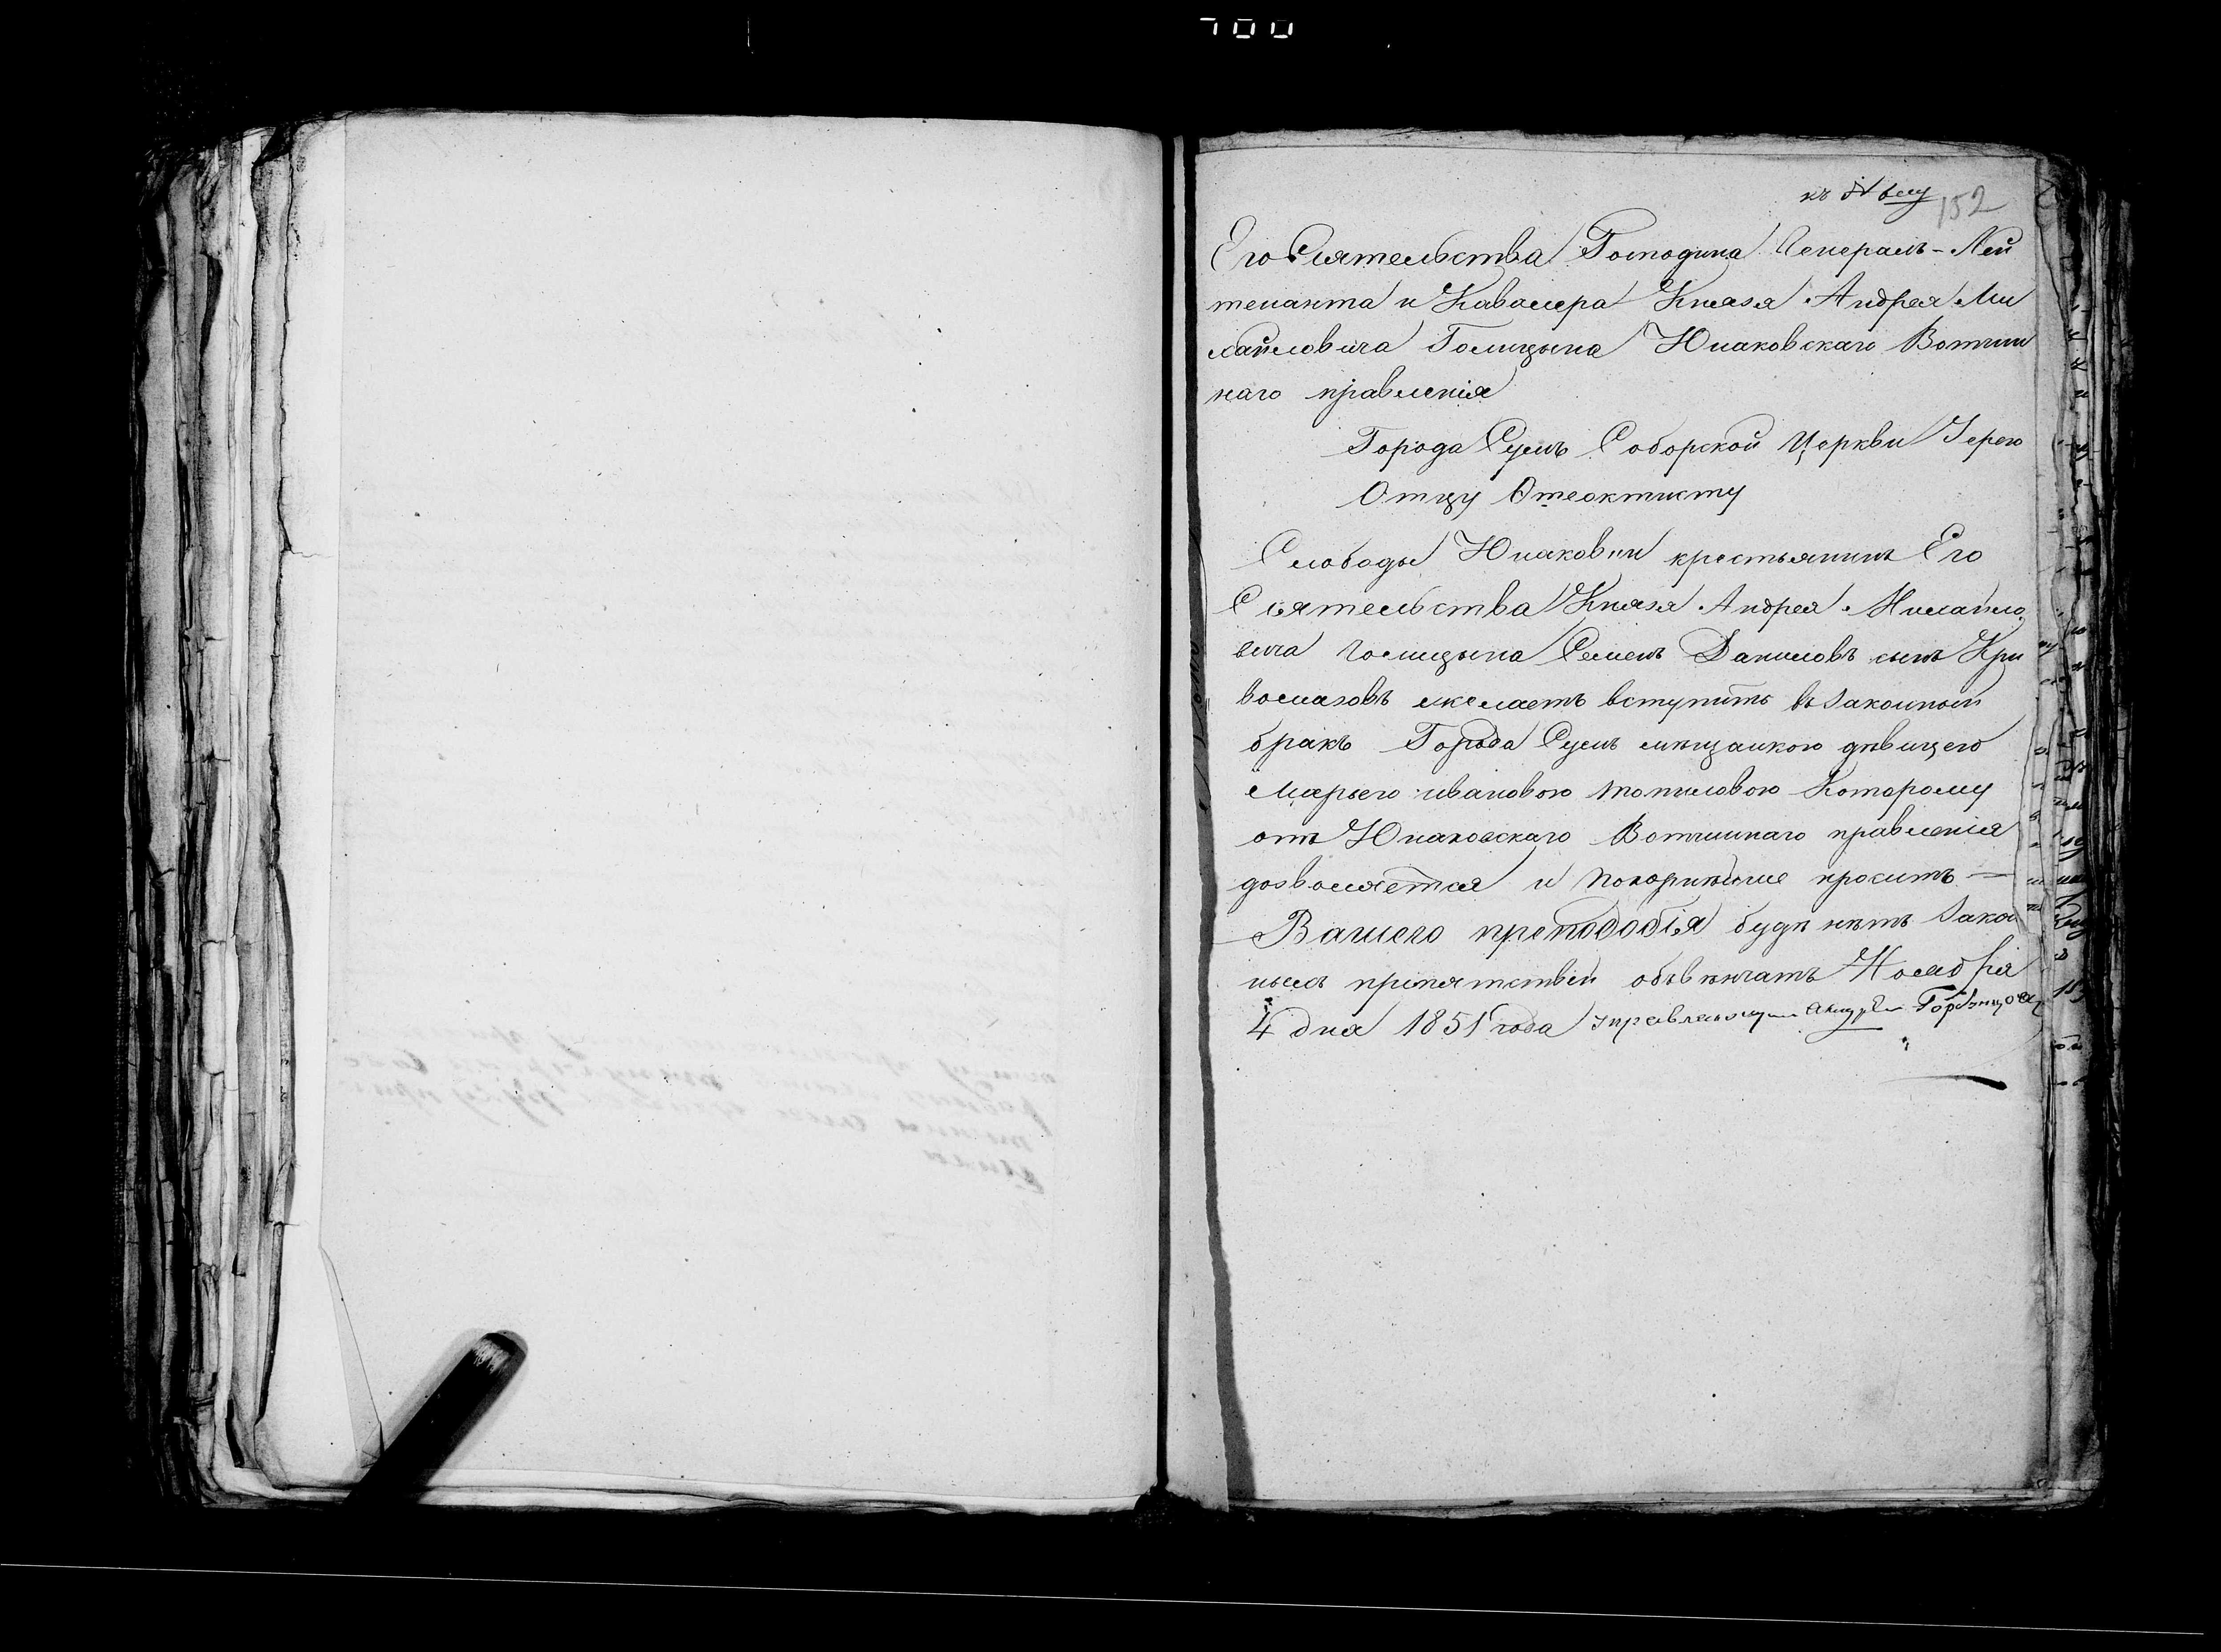 700
къ N 6му 152
Его Сіятельства Господина Генералъ-Лей
тенанта и Кавалера Князя Андрея Ми
хайловича Голицына Юнаковскаго Вотчин
наго правленія
Города Сумъ Соборской Церкви Іерею
Отцу Ѳтеоктисту
Слободы Юнаковки крестьянинъ Его
Сіятельства Князя Андрея Михайло
вича Голицына Семенъ Даниловъ сынъ Кри
вомазовъ желаетъ вступить въ законный
бракъ Города Сумъ мещанкою девицею
Марьею ивановою Томиловою Которому
отъ Юнаковскаго Вотчиннаго правленія
дозволяется и покорнейше проситъ —
Вашего преподобія буде нетъ Закон
ныхъ препятствій объвенчать Ноября
4 дня 1851 года Управляющій Андрей